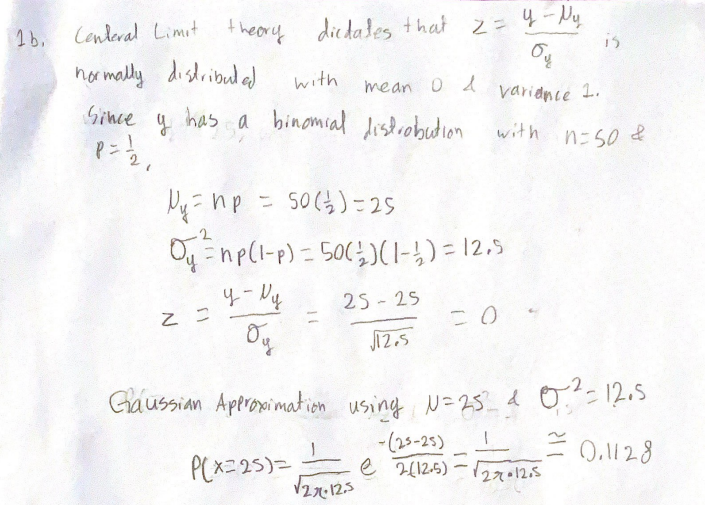 1b. Centeral Limit theory dictates that z = (y - μy) / σy is
normally distributed with mean 0 & variance 1.
Since y has a binomial distrobution with n=50 &
p = 1/2,
μy = np = 50(1/2) = 25
σy² = np(1-p) = 50(1/2)(1-1/2) = 12.5
z = (y - μy) / σy = (25 - 25) / √12.5 = 0
Gaussian Approximation using μ=25 & σ²=12.5
P(x=25) = 1/√(2π·12.5) e^(-(25-25) / 2(12.5)) = 1/√(2π·12.5) ≅ 0.1128